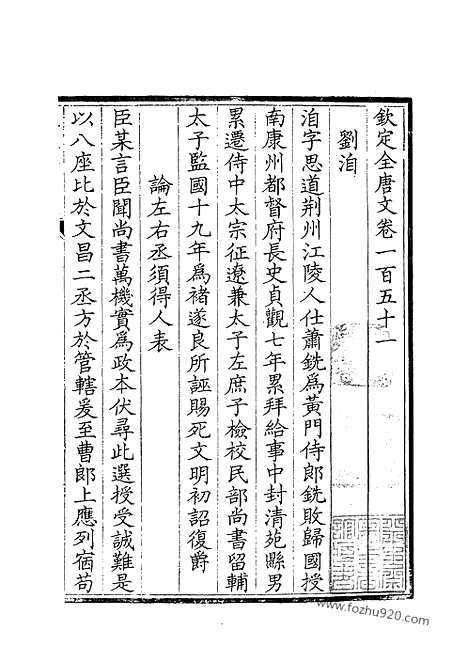 欽定全唐文卷一百五十一
劉洎
洎字思道荆州江陵人仕蕭銑為黃門侍郎銑敗歸國授
南康州都督府長史貞觀七年累拜給事中封清苑縣男
累遷侍中太宗征遼兼太子左庶子檢校民部尚書留輔
太子監國十九年為褚遂良所誣賜死文明初詔復爵
論左右丞須得人表
臣某言臣聞尚書萬機實為政本伏尋此選授受誠難是
以八座比於文昌二丞方於管轄爰至曹郎上應列宿苟
www.fozhu920.com